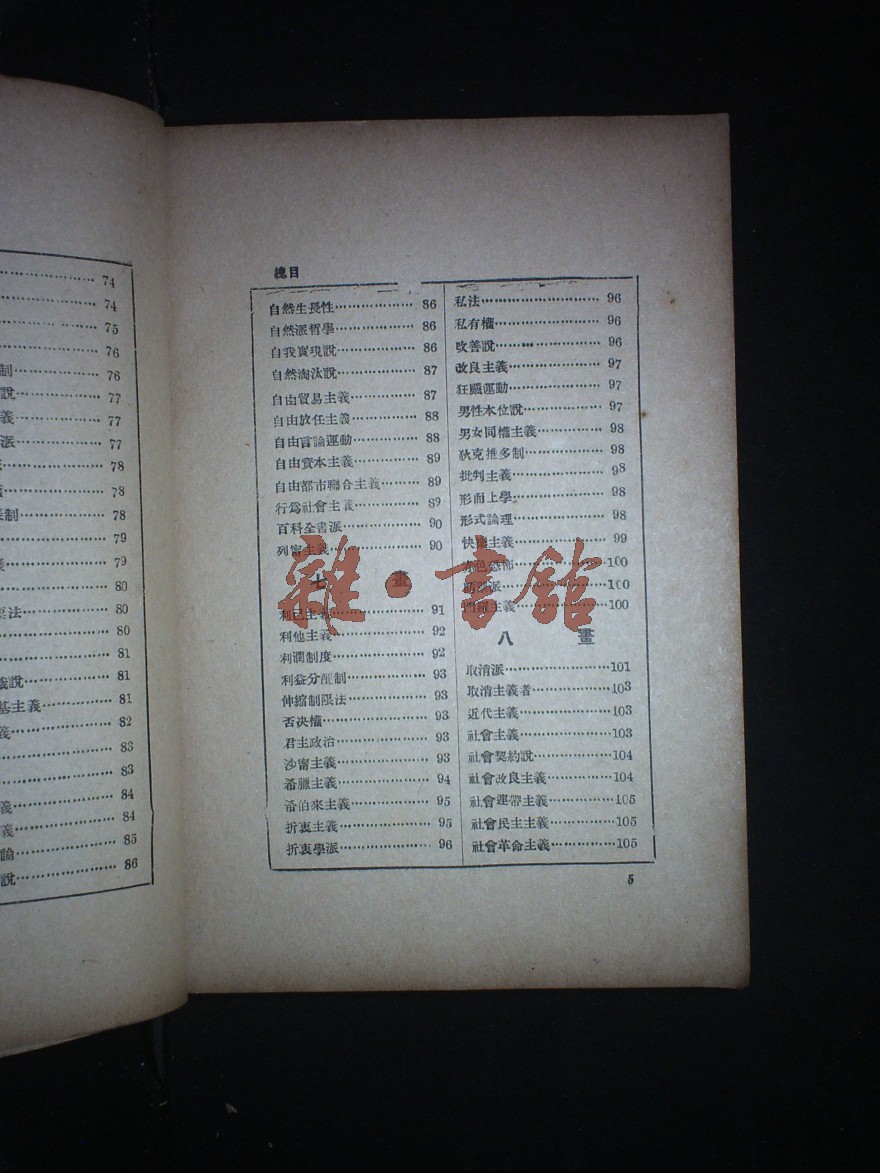 74
74
75
76
制 76
說 77
義 77
派 77
78
78
制 78
79
義 79
80
法 80
80
81
說 81
基主義 81
義 82
83
83
義 84
義 84
論 85
說 86
總目
自然生長性 86
自然派哲學 86
自我實現說 86
自然淘汰說 87
自由貿易主義 87
自由放任主義 88
自由言論運動 88
自由資本主義 89
自由都市聯合主義 89
行爲社會主義 89
百科全書派 90
列甯主義 90
七畫
利己主義 91
利他主義 92
利潤制度 92
利益分配制 93
伸縮制限法 93
否決權 93
君主政治 93
沙甯主義 93
希臘主義 94
希伯來主義 95
折衷主義 95
折衷學派 96
私法 96
私有權 96
改善說 96
改良主義 97
狂飈運動 97
男性本位說 97
男女同權主義 98
狄克推多制 98
批判主義 98
形而上學 98
形式論理 98
快樂主義 99
赤色恐怖 100
派 100
門羅主義 100
八畫
取消派 101
取消主義者 103
近代主義 103
社會主義 103
社會契約說 104
社會改良主義 104
社會連帶主義 105
社會民主主義 105
社會革命主義 105
5
雜·書館